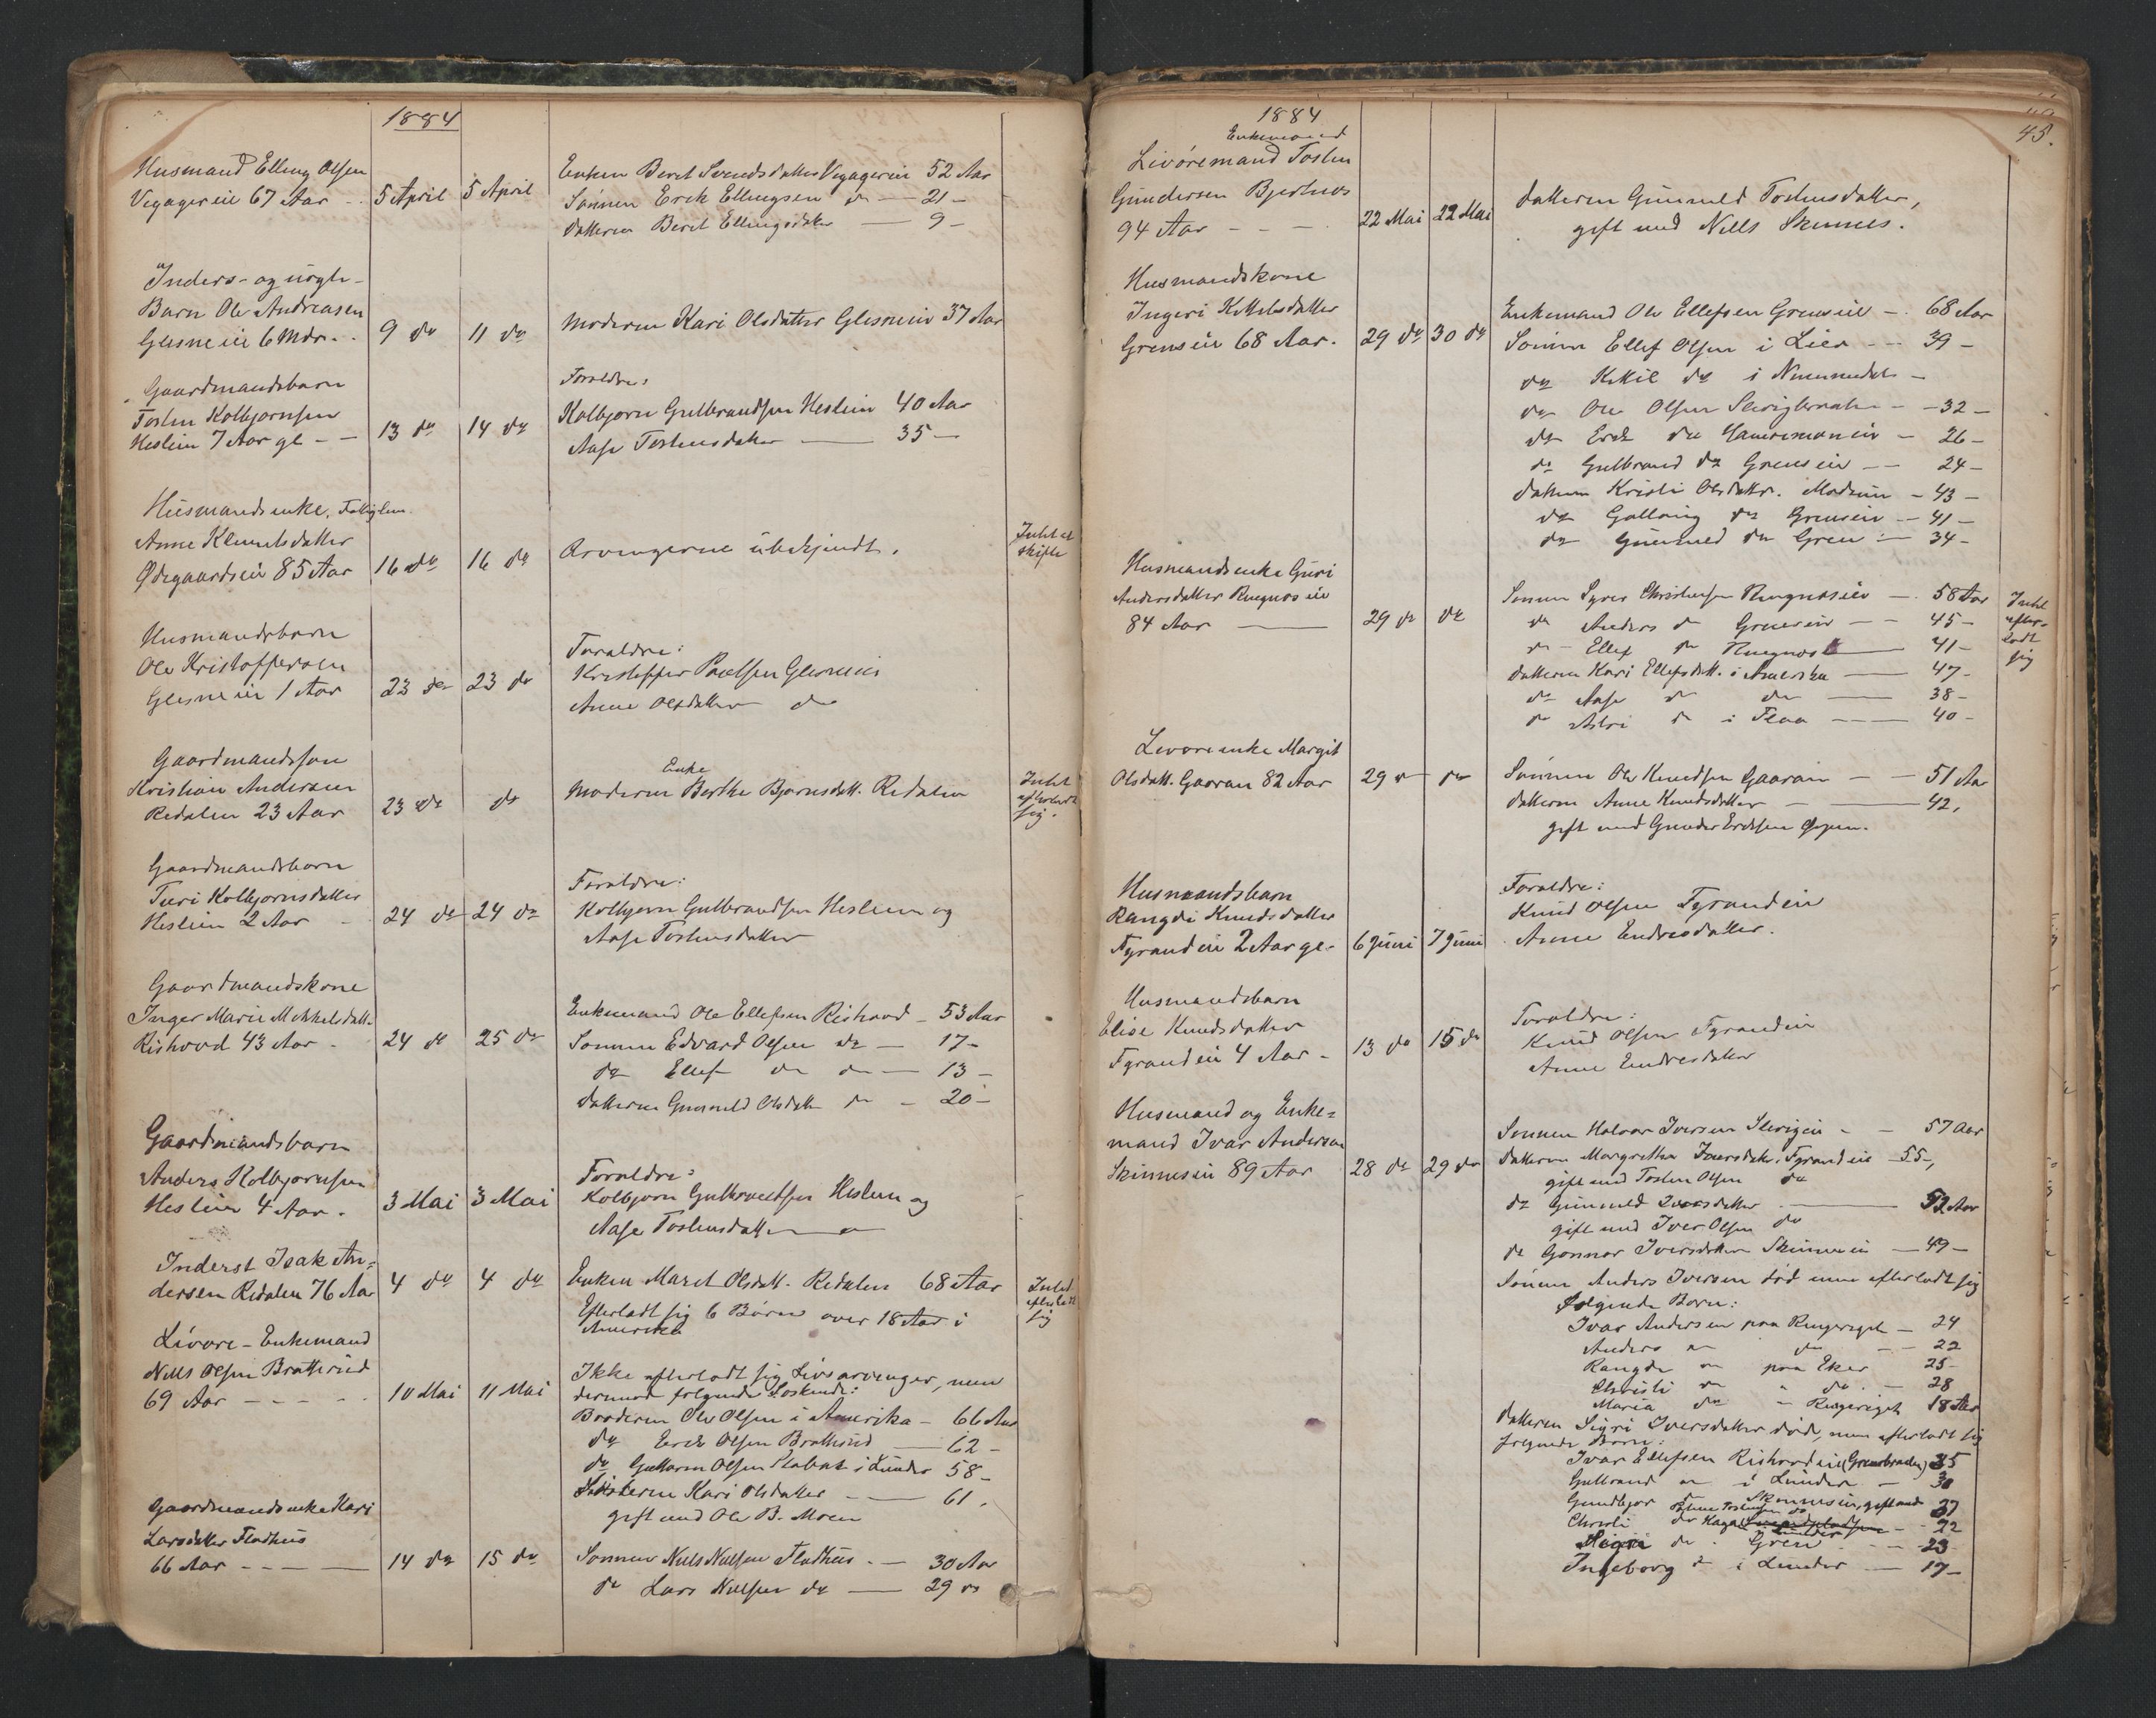 1884
Husmand Elling Olsen
Vegagereie 67 Aar - 5 April 5 April
Enken Beret Svendsdatter Vegagereie 52 Aar
Sønnen Erik Ellingsen do — 21 —
Datteren Berit Ellingsdatter — 9 —
Inders- og uægte-
Barn Ole Andreasen
Glesneeie 6 Mdr. . 9 do 11 do
Moderen Kari Olsdatter Glesneeie 37 Aar
Gaardmandsbarn
Tosten Kolbjørnsen
Heslien 7 Aar gl — 13 do 14 do
Forældre:
Kolbjørn Gulbrandsen Heslien 40 Aar
Aase Tostensdatter — 35 —
Husmandsenke, Fattiglem.
Anne Klemetsdatter
Ødegaardseie 85 Aar 16 do 16 do
Arvingerne ubekjendt.
Intet at
skifte
Husmandsbarn
Ole Kristoffersen
Glesneeie 1 Aar 23 do 23 do
Forældre:
Kristoffer Poulsen Glesneeie
Anne Olsdatter do
Gaardmandssøn
Kristian Andersen
Redalen 23 Aar 23 do do
Enke
Moderen Berthe Bjørnsdatt. Redalen
Intet
efterladt
sig.
Gaardmandsbarn
Turi Kolbjørnsdatter
Heslien 2 Aar - 24 do 24 do
Forældre:
Kolbjørn Gulbrandsen Heslien og
Aase Tostensdatter
Gaardmandskone
Inger Marie Mikkelsdatt.
Rishovd 43 Aar - 24 do 25 do
Enkemand Ole Ellefsen Rishovd - 53 Aar
Sønnen Edvard Olsen do — 17 -
do Ellef do do — 13 —
Datteren Gunnild Olsdatt do — 20 —
Gaardmandsbarn
Anders Kolbjørnsen
Heslien 4 Aar. 3 Mai 3 Mai
Forældre:
Kolbjørn Gulbrandsen Heslien og
Aase Tostensdatter
Inderst Isak An=
dersen Redalen 76 Aar 4 do 4 do
Enken Maret Olsdatt. Redalen 68 Aar
Efterladt sig 6 Børn over 18 Aar i
Amerika
Intet
efterladt
sig
Livøre-Enkemand
Nells Olsen Bratterud
69 Aar - - - - 10 Mai 11 Mai
Ikke efterladt sig Livsarvinger, men
derimod følgende Søskende:
Broderen Ole Olsen i Amerika — 66 Aar
do Erik Olsen Bratterud — 62 —
do Guttorm Olsen i Lunder 58 —
Søsteren Kari Olsdatter — 61.
gift med Ole B. Moen
Gaardmandsenke Kari
Larsdatter Flodhus
66 Aar - - - — 14 do 15 do
Sønnen Niels Nielsen Flodhus. — 30 Aar
do Lars Nielsen do — 29 do
45.
1884
Enkemand
Livøremand Tosten
Gundersen Bjertnæs
94 Aar - - - 22 Mai 22 Mai
Datteren Gunnild Tostensdatter,
gift med Nells Skinnes.
Husmandskone
Ingeri Kittelsdatter
Grenseie 68 Aar. 29 do 30 do
Enkemand Ole Ellefsen Grenseie — 68 Aar
Sønnen Ellef Olsen i Lier - - 39 —
do Kittil do i Numedal —
do Ole Olsen - - 32 —
do Erik do — 26 —
do Gulbrand do Grenseie — — 24 —
Datteren Kristi Olsdatter. Modum — 43 —
do do Grenseie — 41 —
do Gunnild do Gren — 34 —
Husmandsenke Guri
Andersdatter Ringnæseie
84 Aar — 29 do do
Sønnen Syver Christensen Ringnæseie — 58 Aar
do Anders do Grenseie — - 45 —
do Ellef do Ringnæs — 41 —
Datteren Kari Ellefsdatt. i Amerika — 47 -
do Aase do do — 38 —
do Astri do i Flaa — — 40 -
Intet
efter-
ladt
sig
Livøreenke Margit
Olsdatt. Gaaran 82 Aar 29 do do
Sønnen Ole Knudsen Gaaran — — 51 Aar
Datteren Anne Knudsdatter — — 42,
gift med Gunder Eriksen
Husmandsbarn
Rangdi Knudsdatter
Fyrandeie 2 Aar gl- 6 Juni 7 Juni
Forældre:
Knud Olsen Fyrandeie
Anne Endresdatter.
Husmandsbarn
Elise Knudsdatter
Fyrandeie 4 Aar - 13 do 15 do
Forældre:
Knud Olsen Fyrandeie
Anne Endresdatter
Husmand og Enke=
mand Ivar Andersen
Skinneseie 89 Aar 28 do 29 do
Sønnen Halvor Iversen - — 57 Aar
Datteren Margrethe Iversdatter Fyrandeie — 55 —,
gift med Tosten Olsen do
do Gunnild Iversdatter — 52 Aar
gift med Iver Olsen do
do Gonnor Iversdatter Skinneseie — 49 —
Sønnen Anders Iversen død men efterladt sig
følgende Børn:
Ivar Andersen paa Ringeriget — 24
Anders do do - — 22
Rangdi do paa Eker 25
Christi do " do. — 28
Maria do — Ringeriget 18 Aar
Datteren Sigri Iversdatter død, men efterladt sig
følgende Børn:
Ivar Ellefsen Rishovdeie (Grensbraaten) 35
Gulbrand do i Lunder — 30
Gundbjør do Skinneseie, gift med 37
Christi do — 22
Sigri do . Gren . — — 23
Ingeborg do i Lunder — 17 —